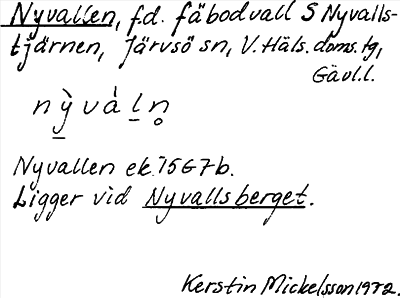 Nyvallen, f.d. fäbodvall S Nyvalls-
tjärnen, Järvsö sn, V. Häls. doms. tg,
Gävl. l.
nỳvàln̥
Nyvallen ek. 15G7b.
Ligger vid Nyvallsberget.
Kerstin Mickelsson 1972.